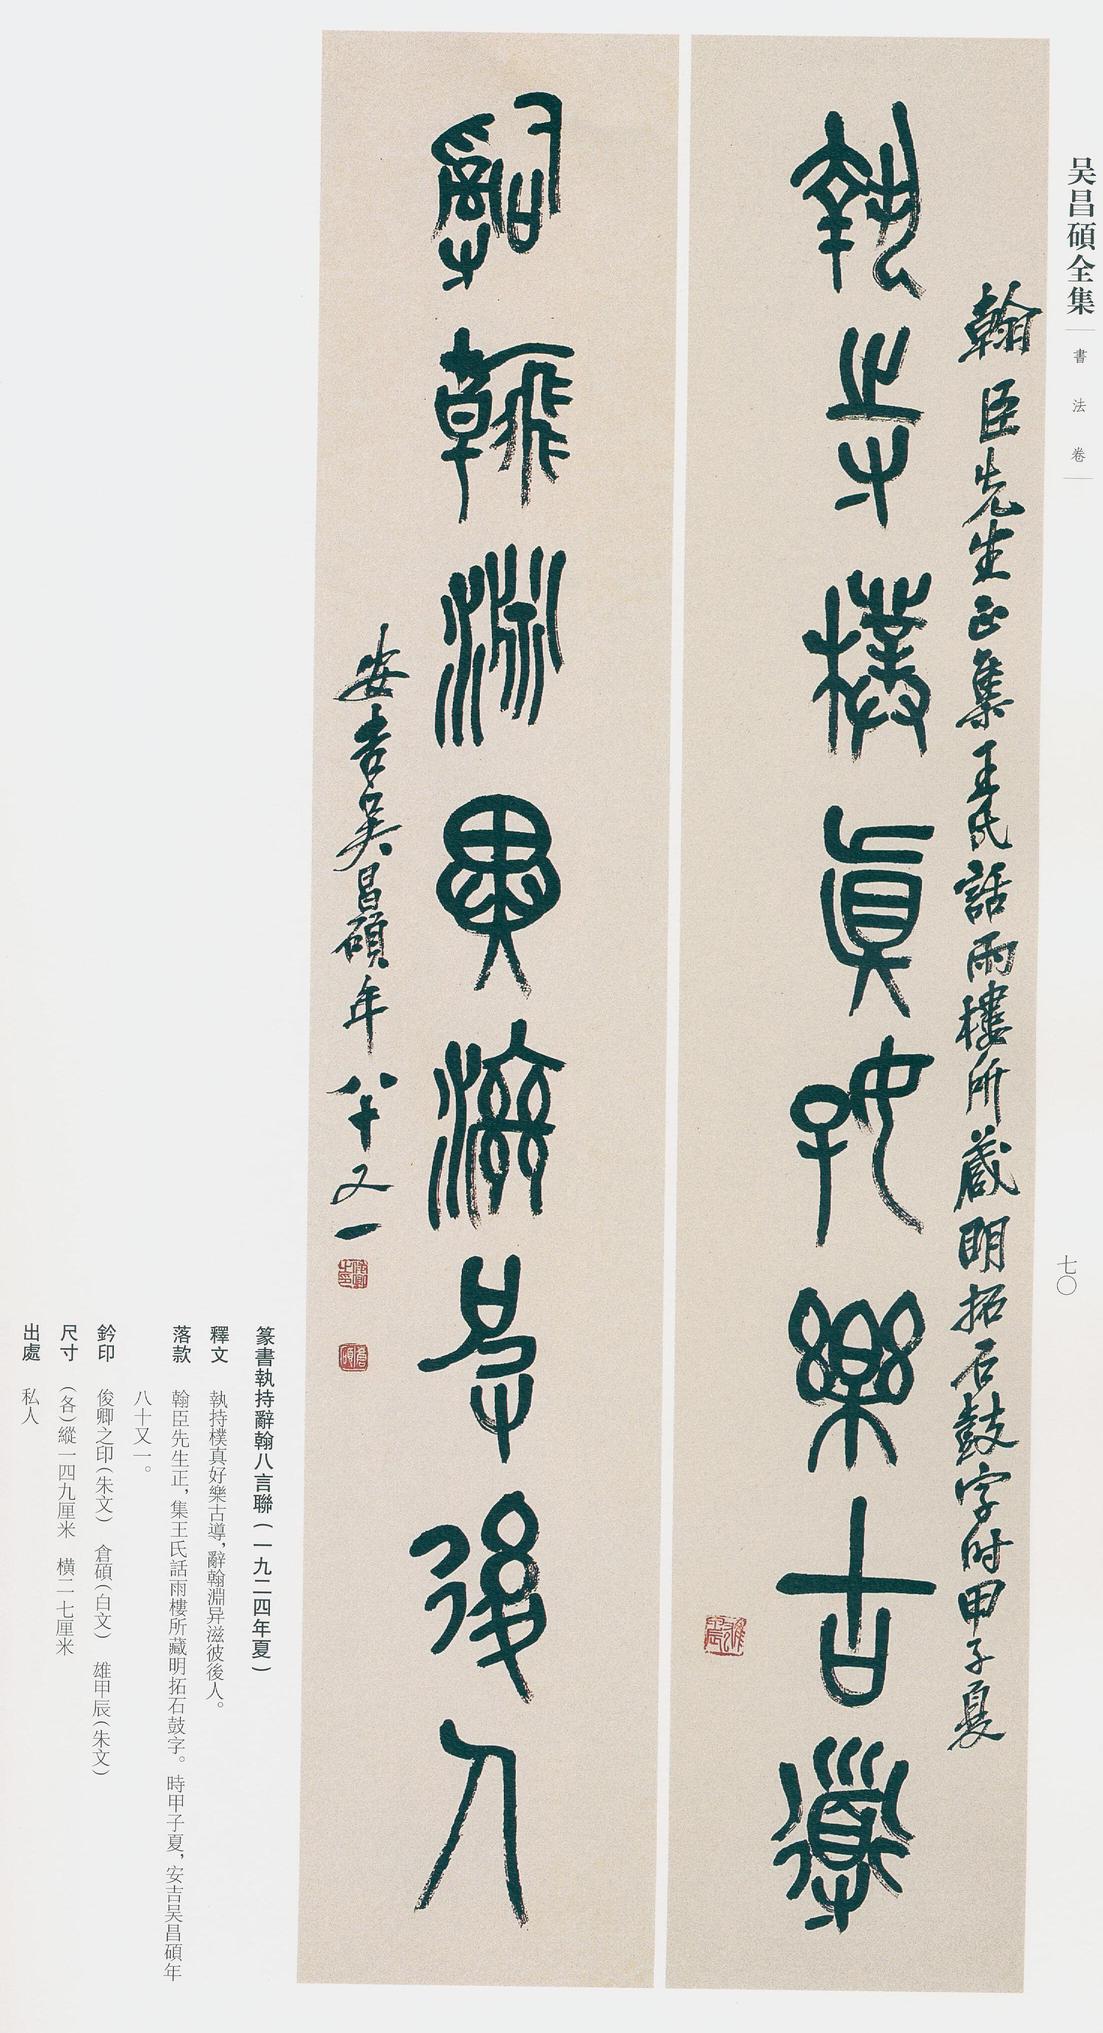 吴昌碩全集
書法卷
七〇
翰臣先生正集王氏話雨樓所藏明拓石鼓字时甲子夏
執持樸真好樂古導
辭翰淵異滋彼後人
安吉吴昌碩年八十又一
俊卿之印
倉碩
雄甲辰
篆書執持辭翰八言聯(一九二四年夏)
釋文 執持樸真好樂古導，辭翰淵异滋彼後人。
落款 翰臣先生正，集王氏話雨樓所藏明拓石鼓字。時甲子夏，安吉吴昌碩年
八十又一。
鈐印 俊卿之印(朱文) 倉碩(白文) 雄甲辰(朱文)
尺寸 (各)縱一四九厘米 橫二七厘米
出處 私人